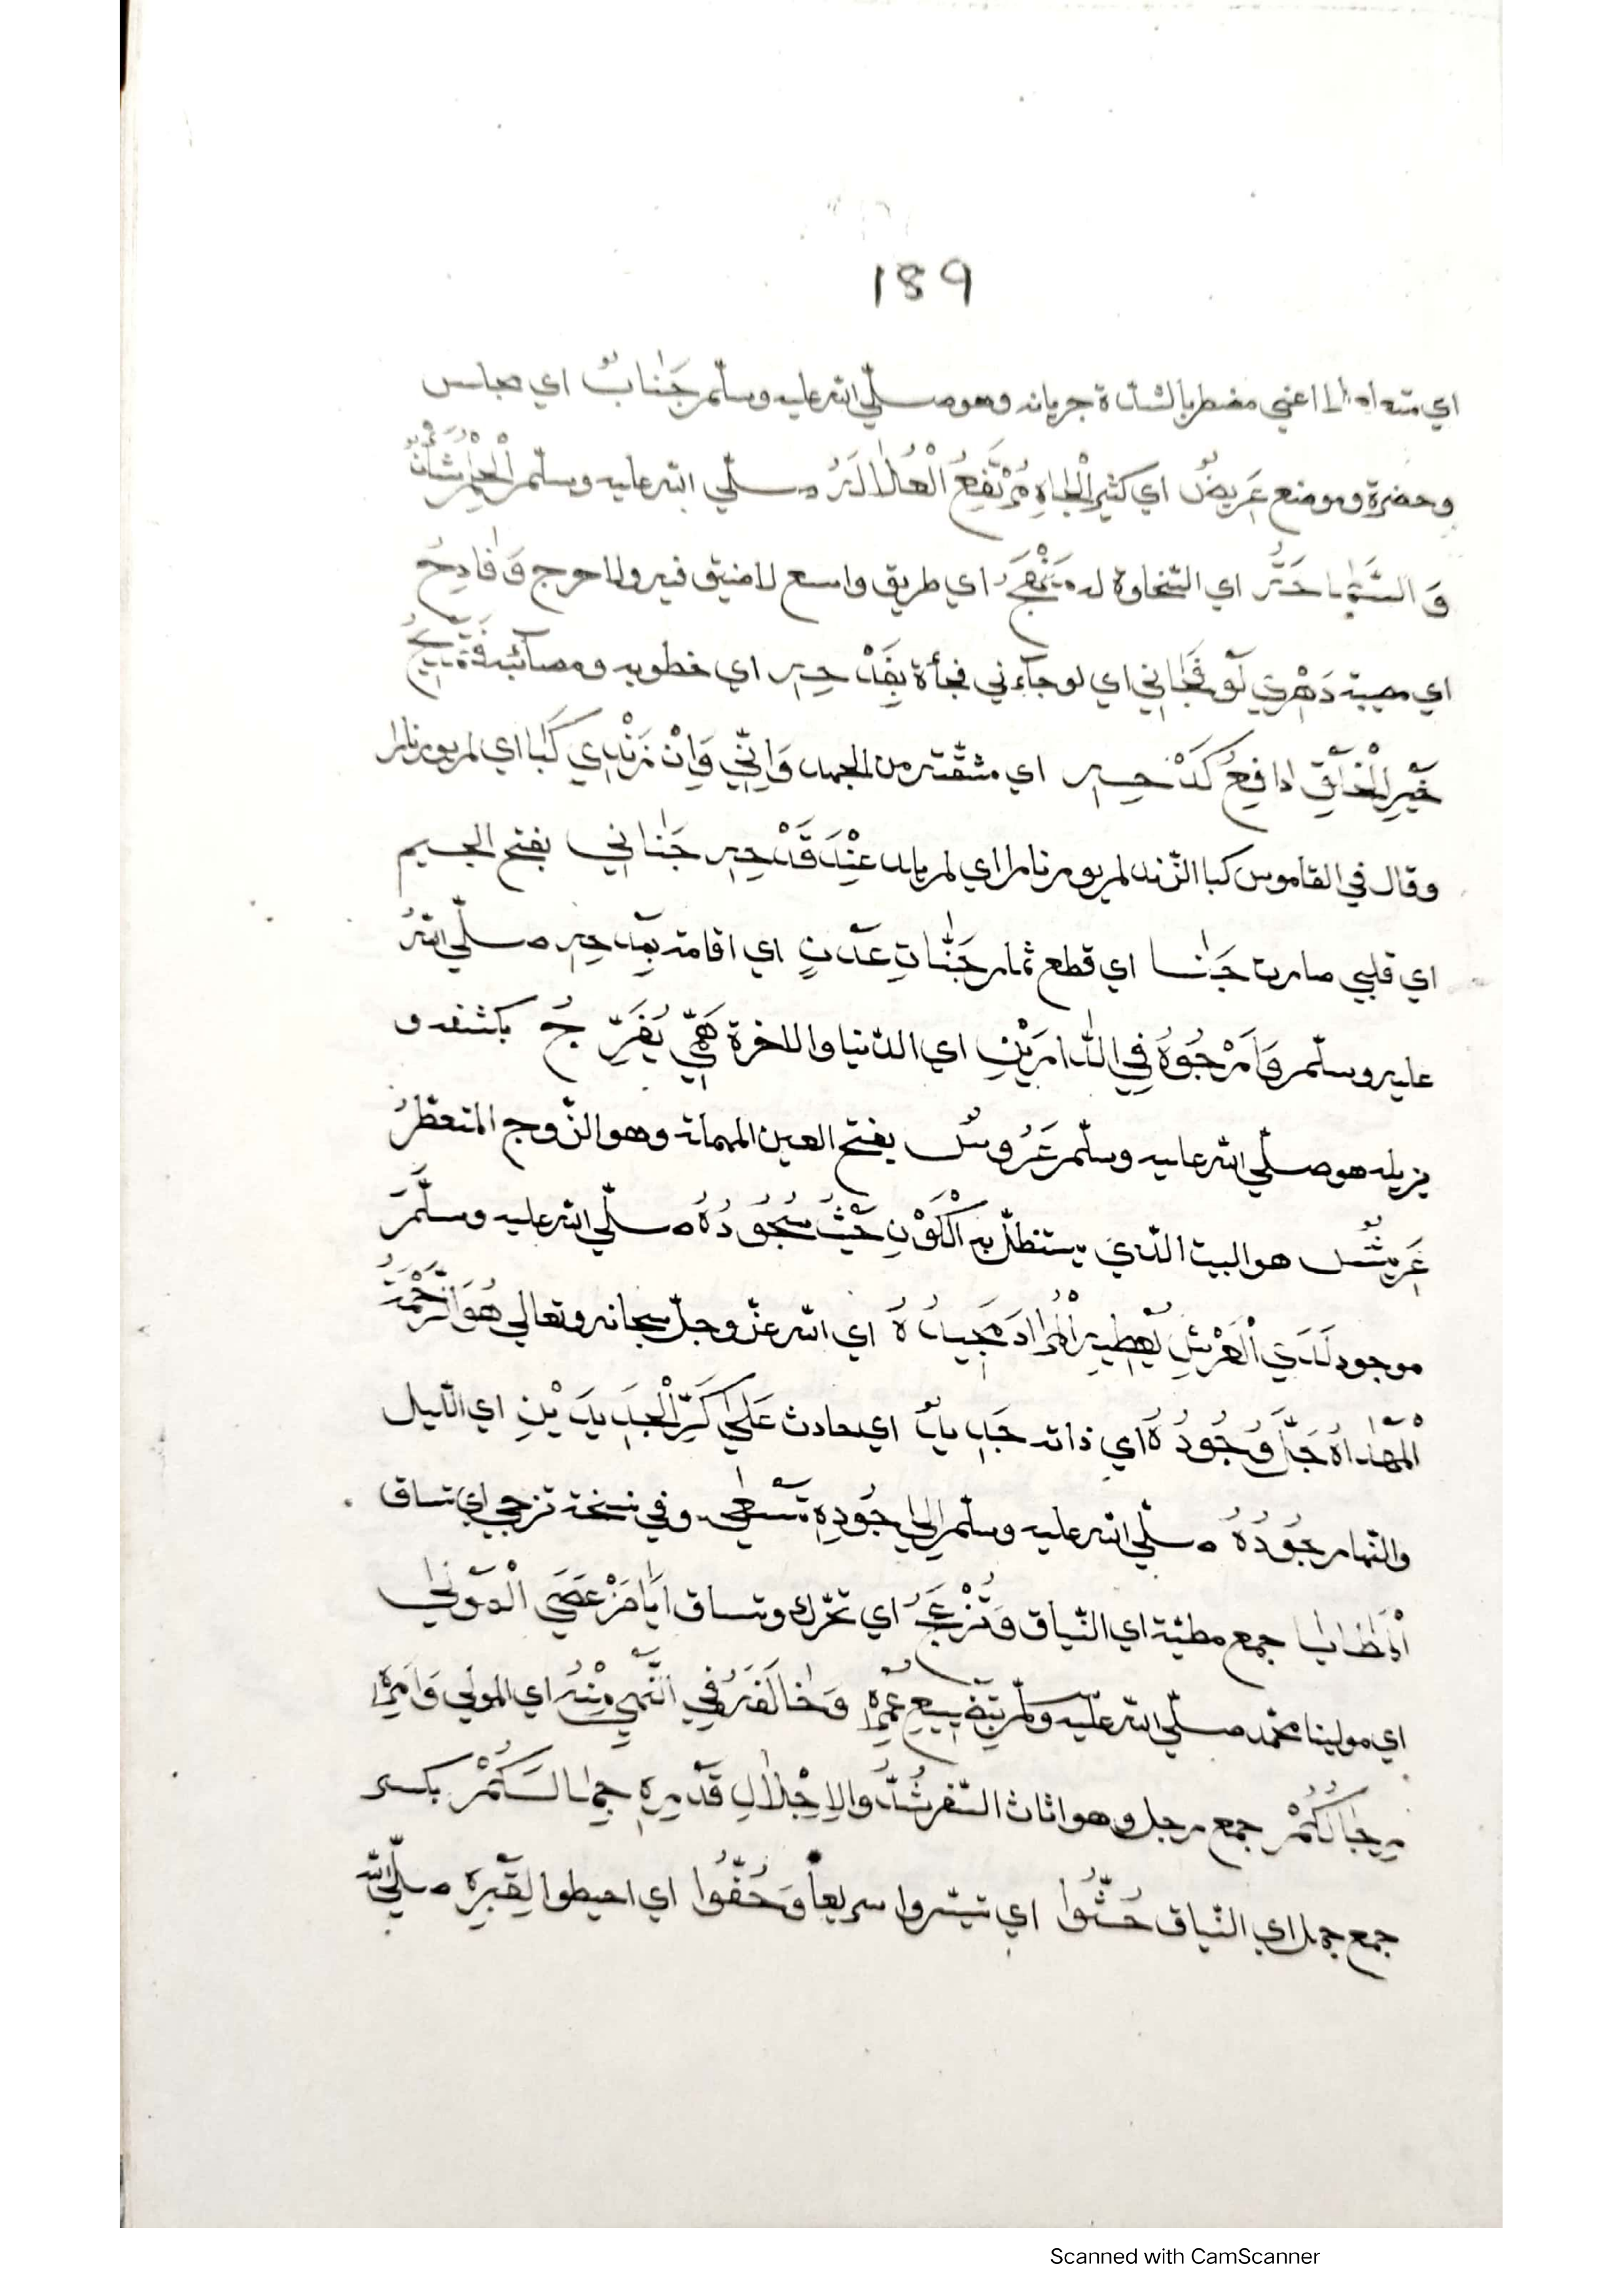 189
اي اعني مضطربا لشدة جريانه وهو صلّي الله عليه وسلّم جَنَابٌ اي مجلس
وحضرة وموضع عَرِيضٌ اي كثير الْجَاهِ مُرْتَفِعُ الْعُلَا لَهُ صلّي الله عليه وسلّم
وَ السَّمَاحَةُ اي السّخاوة له مَنْهَجٌ اي طريق واسع لا ضيق فيه ولا حرج وَفَادِحُ
اي مصيبة دَهْرِيَ لَوْ فَجَانِي اي لو جآءني فجأة بِفَدْحِهِ اي خطوبه ومصآئبه
خَيْرِ الْخَلْقِ ادافِعُ كَدْحِهِ اي مشقّته من الجهد وَاِنِّي وَاِنْ زَنْدِي كَبَا اي لم يور نارا
وقال في القاموس كبا الزّند لم يور نارا اي لم عِنْدَ قَدْحِهِ جَنَانِي بفتح الجيم
اي قلبي صارت جَنَا اي قطع ثمار جَنَّاتِ عَدْنٍ اي اقامة بِمَدْحِهِ صلّي الله
عليه وسلّم وَاَرْجُوهُ فِي الدَّارَيْنِ اي الدّنيا والاخرة هَمِّي يُفَرِّجُ بكشفه و
يزيله هو صلّي الله عليه وسلّم عَرُوسٌ بفتح العين المهملة وهو الزّوج المتعطّر
عَرِيشٌ هو البيت الّذي يستظلّ به اَلْكَوْنِ حَيْثُ سُجُودُهُ صلّي الله عليه وسلّم
موجود لَدَي الْعَرْشِ يُعْطِيهِ الْمُرَادَ مَجِيدُهُ اي الله عزّ وجلّ سبحانه وتعالي هُوَ الرَّحْمَةُ
الْمُهْدَاةُ جَلَّ وُجُودُهُ اي ذاته جَدِيدٌ اي حادث عَلَي كَرِّ الْجَدِيدَيْنِ اي اللّيل
والنّهار جُودُهُ صلّي الله عليه وسلّم اِلَي جُودِهِ وفي نسخة تزجي اي تساق
الْمَطَايَا جمع مطيّة اي النّياق وَتُزْعَجُ اي تحرّك وتساق اَيَا مَنْ عَصَي الْمَوْلَي
اي مولينا محمّد صلّي الله عليه وسلّم وَخَالَفَهُ فِي النَّهْيِ مِنْهُ اي المولي وَاَمْرِهِ
رِحَالَكُمْ جمع رحل وهو اثاث السّفر شُدُّوا لِاِجْلَالِ قَدْرِهِ جِمَالَكُمْ بكسر
جمع جمل اي النّياق حُثُّوا اي سريعاً وَحُفُّوا اي احيطوا لِقَبْرِهِ صلّي الله
Scanned with CamScanner